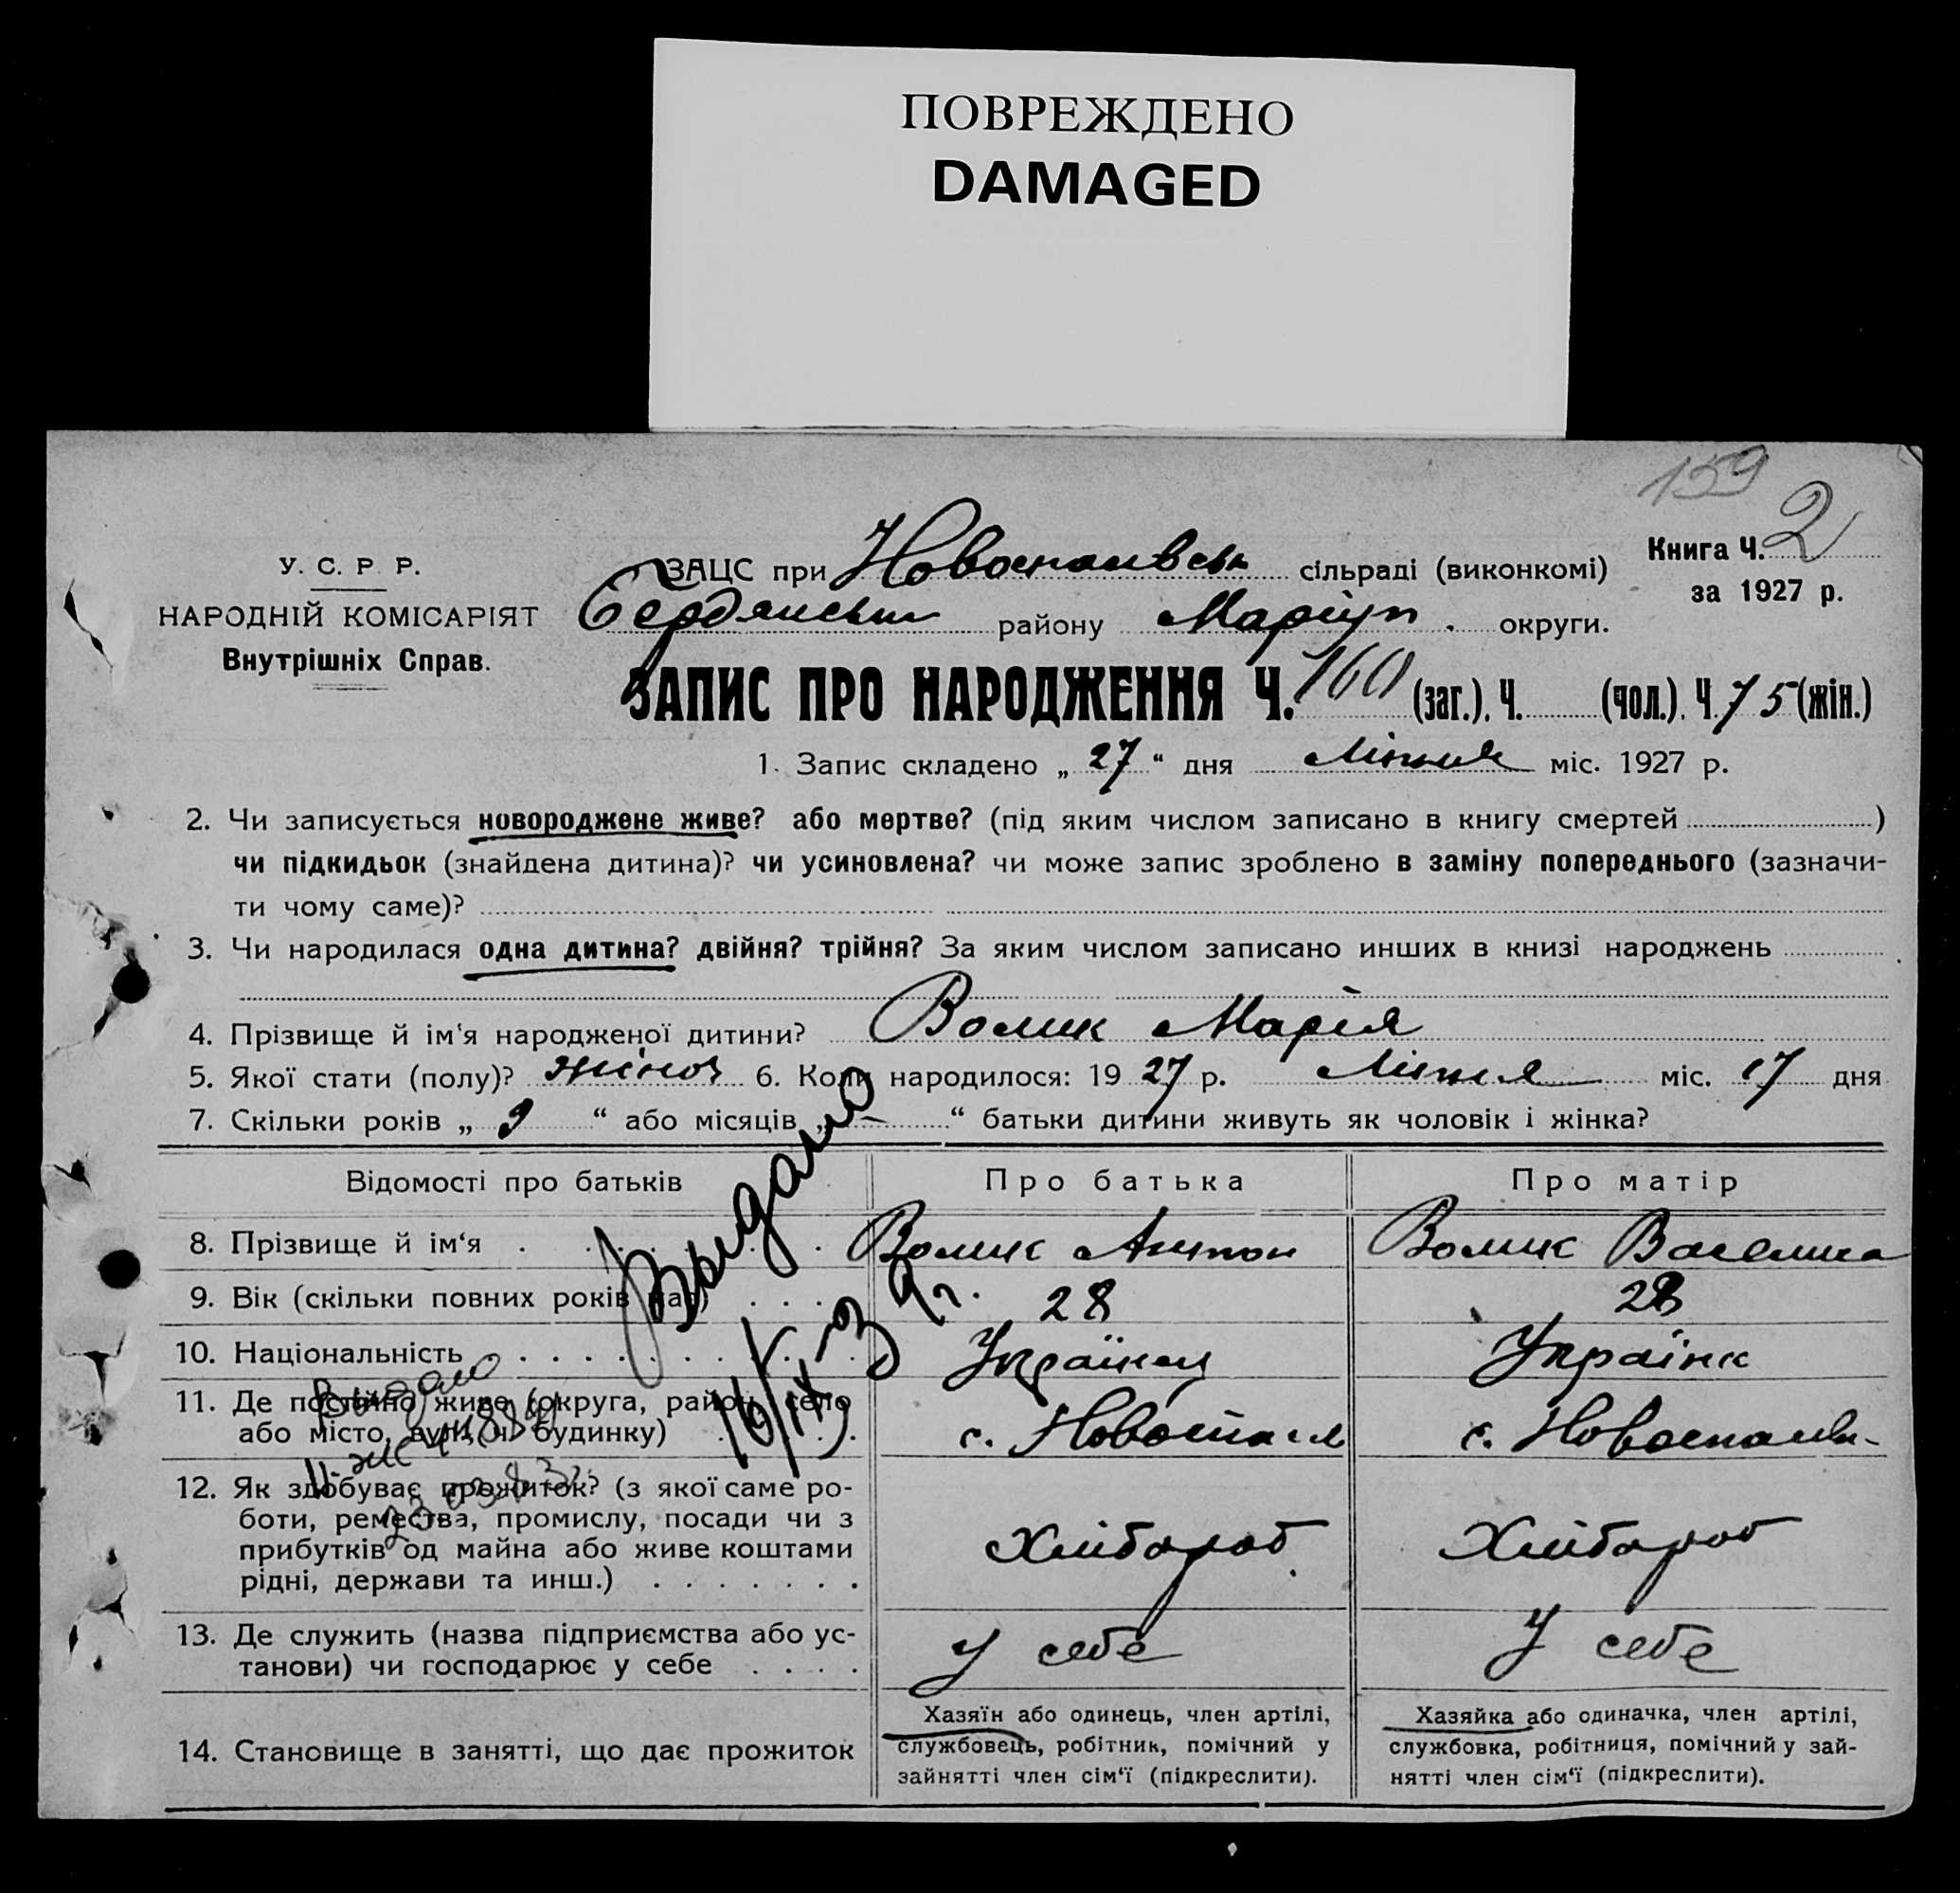 ПОВРЕЖДЕНО
DAMAGED
159
У. С. Р. Р.
НАРОДНІЙ КОМІСАРІЯТ
Внутрішніх Справ.
ЗАЦС при Новоспаивськ сільраді (виконкомі)
Бердянськ району Маріуп. округи.
Книга Ч. 2
за 1927 р.
ЗАПИС ПРО НАРОДЖЕННЯ Ч. 160 (заг.). Ч. (чол.). Ч. 75 (жін.)
1. Запис складено „ 27 “ дня Липня міс. 1927 р.
2. Чи записується новороджене живе? або мертве? (під яким числом записано в книгу смертей )
чи підкидьок (знайдена дитина)? чи усиновлена? чи може запис зроблено в заміну попереднього (зазначи-
ти чому саме)?
3. Чи народилася одна дитина? двійня? трійня? За яким числом записано инших в книзі народжень
4. Прізвище й ім‘я народженої дитини? Волик Марія
5. Якої стати (полу)? жіноч 6. Коли народилося: 19 27 р. Липня міс. 17 дня
7. Скільки років „ 9 “ або місяців „ — “ батьки дитини живуть як чоловік і жінка?
Відомості про батьків Про батька Про матір
8. Прізвище й ім‘я Волик Антон Волик Василина
9. Вік (скільки повних років має) 28 28
10. Національність Українец Українк
11. Де постійно живе (округа, район, село
або місто, вулиця, ч. будинку) с. Новоспас с. Новоспаив-
12. Як здобуває прожиток? (з якої саме ро-
боти, ремества, промислу, посади чи з
прибутків од майна або живе коштами
рідні, держави та инш.) Хлібороб Хлібороб
13. Де служить (назва підприємства або ус-
танови) чи господарює у себе У себе У себе
14. Становище в занятті, що дає прожиток
Хазяїн або одинець, член артілі,
службовець, робітник, помічний у
зайнятті член сім‘ї (підкреслити).
Хазяйка або одиначка, член артілі,
службовка, робітниця, помічний у зай-
нятті член сім‘ї (підкреслити).
Выдано
16/IX-39 г.
Выдано